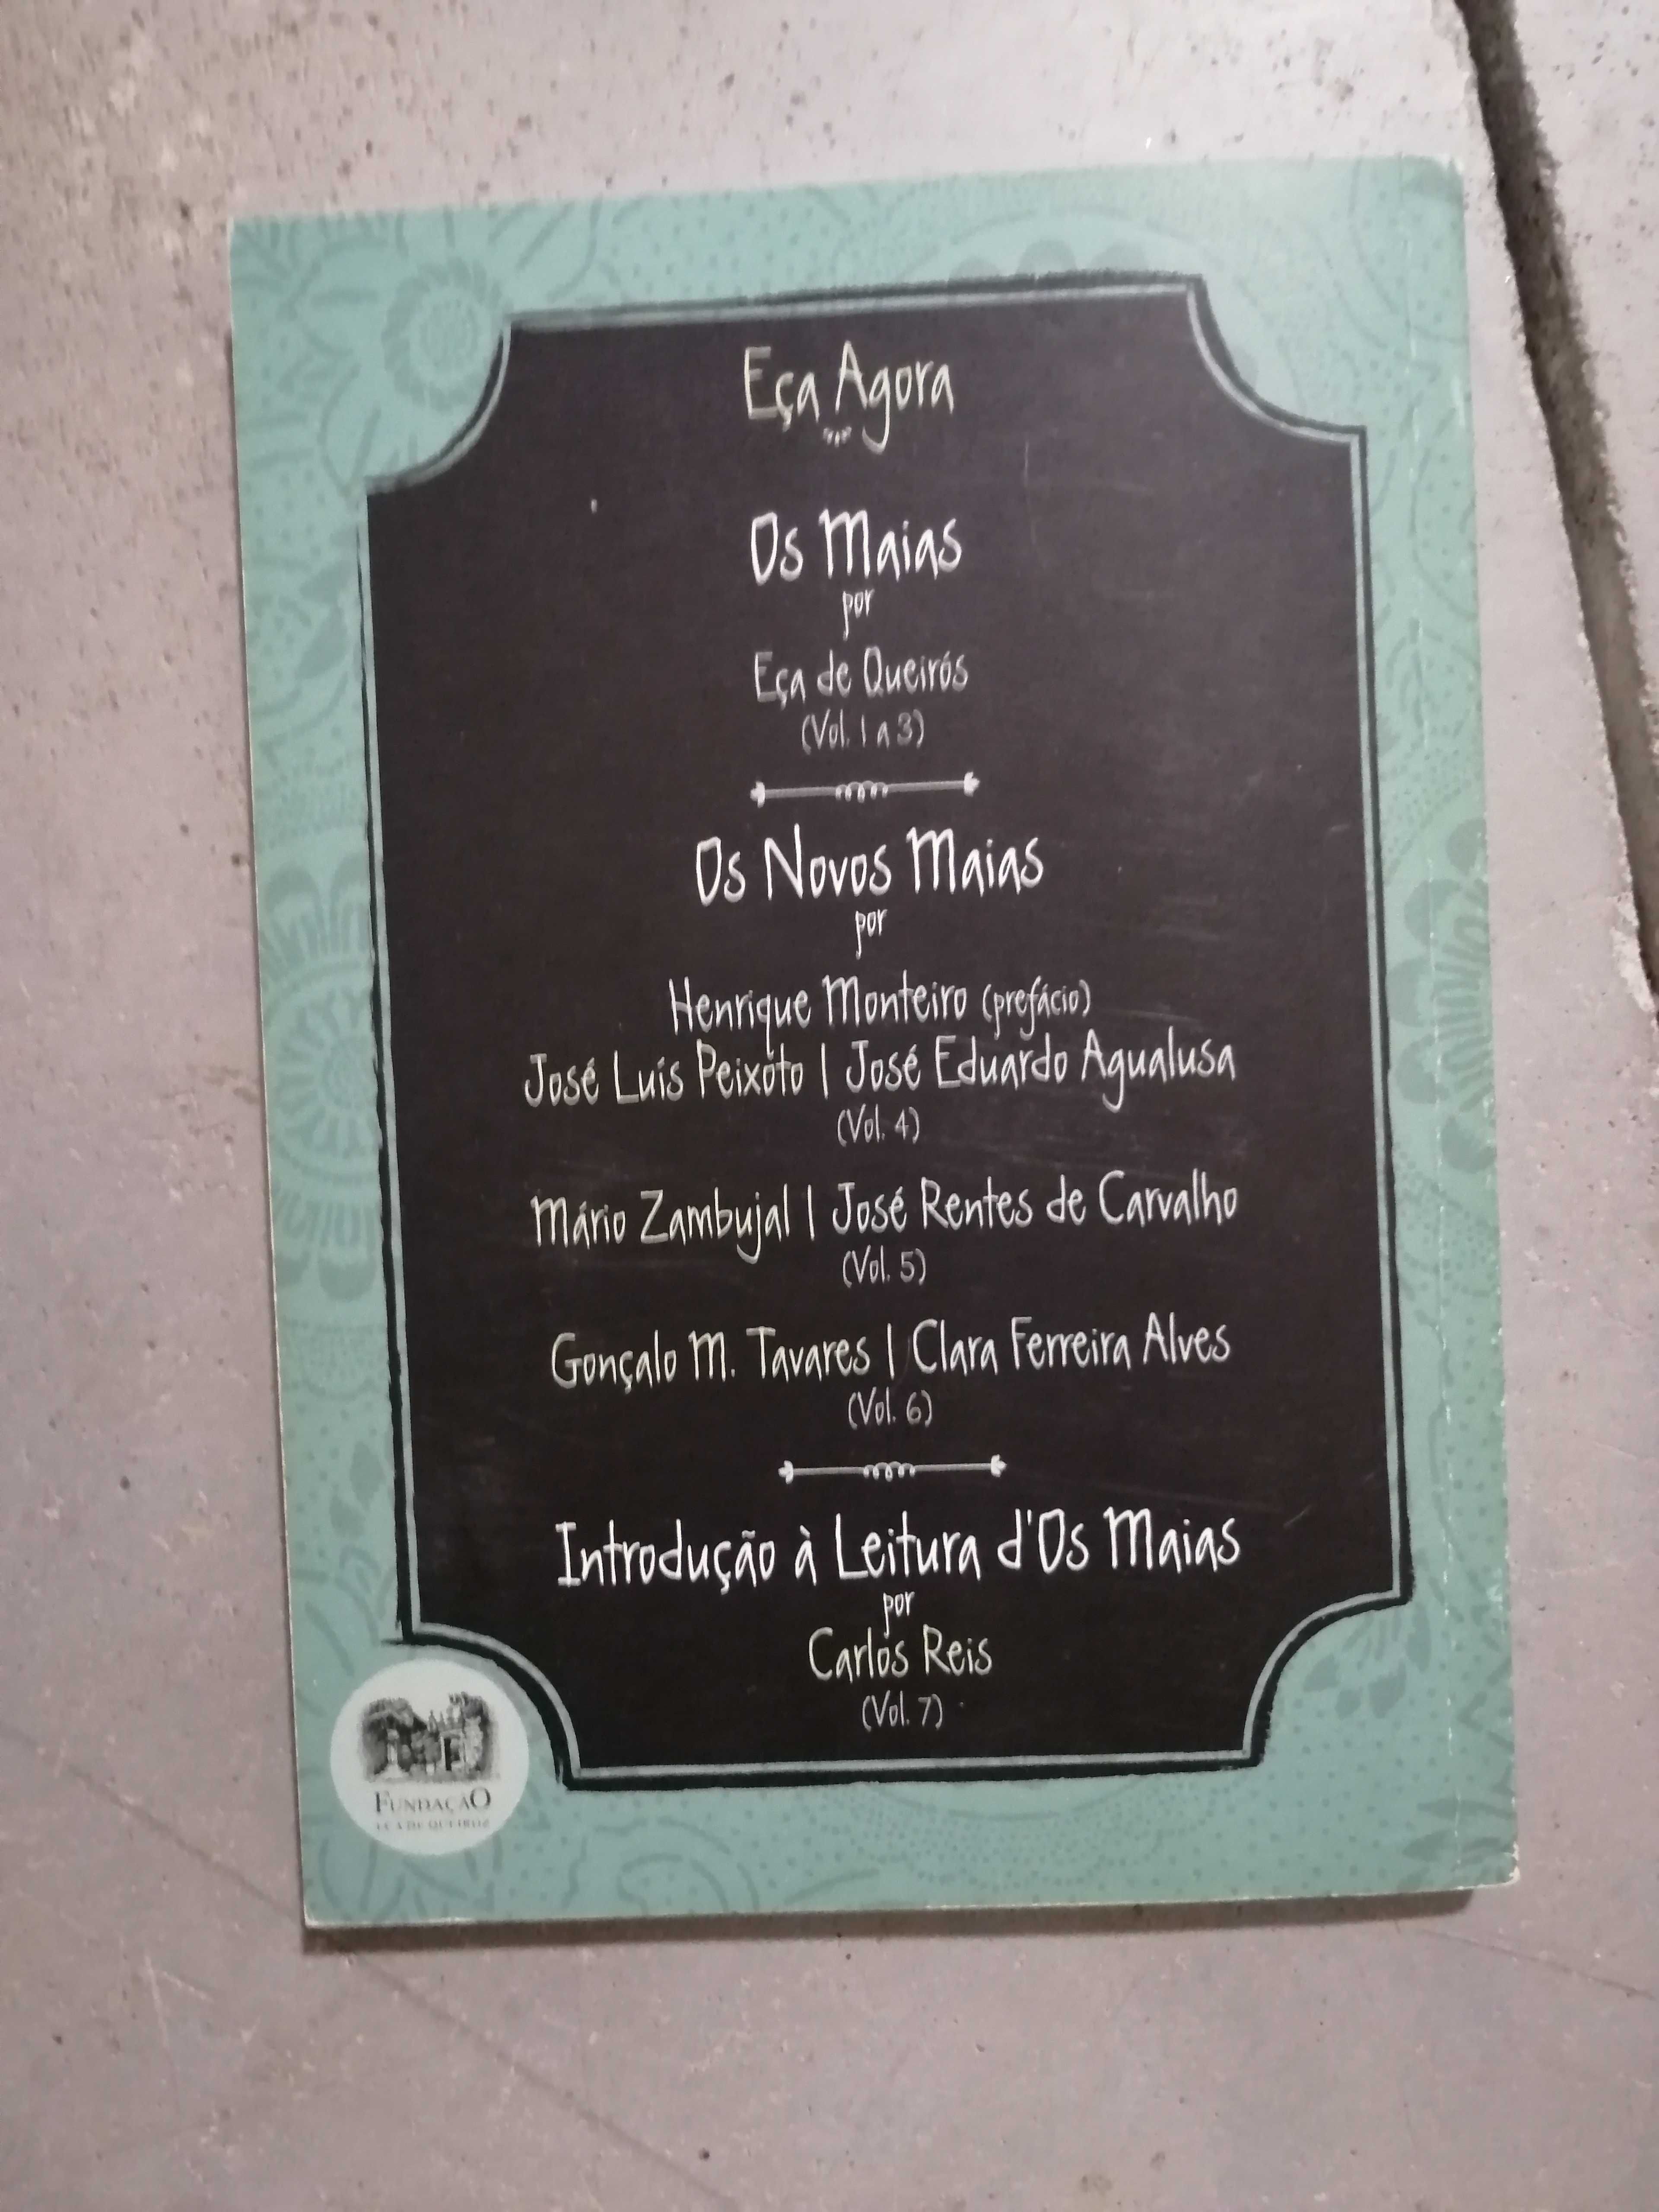 Eça Agora
Os Maias
por
Eça de Queirós
(Vol. 1 a 3)
Os Novos Maias
por
Henrique Monteiro (prefácio)
José Luís Peixoto | José Eduardo Agualusa
(Vol. 4)
Mário Zambujal | José Rentes de Carvalho
(Vol. 5)
Gonçalo M. Tavares | Clara Ferreira Alves
(Vol. 6)
Introdução à Leitura d'Os Maias
por
Carlos Reis
(Vol. 7)
FUNDAÇÃO
EÇA DE QUEIROZ